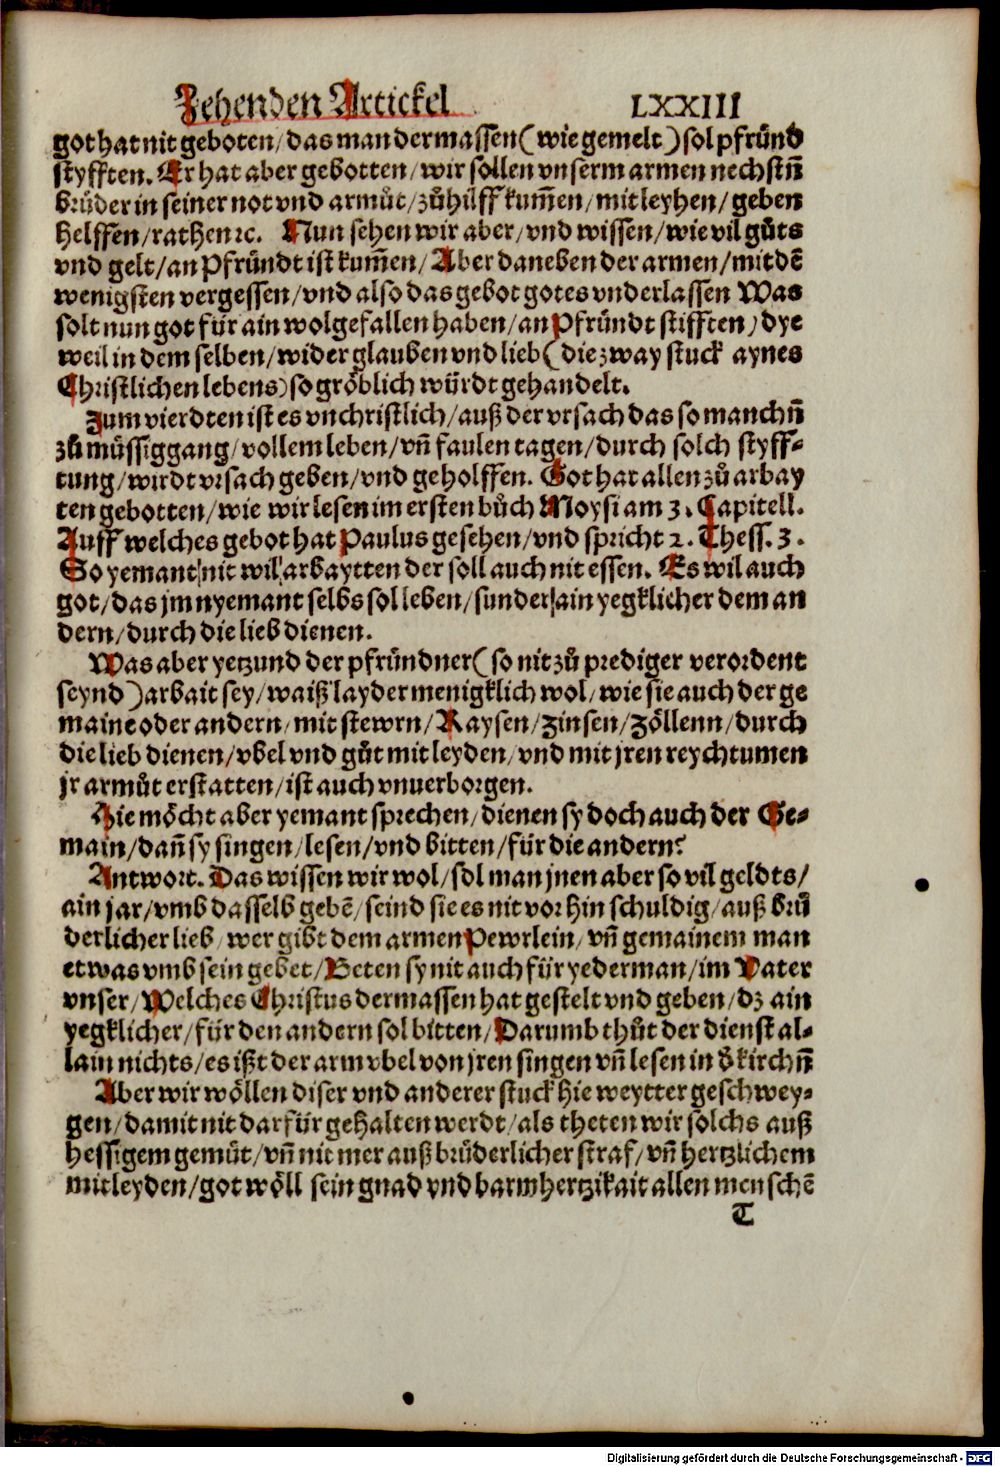 Zehenden Artickel LXXIII
got hat nit geboten/ das man dermassen (wie gemelt) sol pfründ
styfften. Er hat aber gebotten/ wir sollen vnserm armen nechstn̄
brůder in seiner not vnd armůt/ zůhilff kum̄en/ mitleyhen/ geben
helffen/ rathen ꝛc. Nun sehen wir aber/ vnd wissen/ wie vil gůts
vnd gelt/ an Pfründt ist kum̄en/ Aber daneben der armen/ mit dē
wenigsten vergessen/ vnd also das gebot gotes vnderlassen Was
solt nun got für ain wolgefallen haben/ an Pfründt stifften/ dye
weil in dem selben/ wider glauben vnd lieb (die zway stuck aynes
Christlichen lebens) so gröblich würdt gehandelt.
Zum vierdten ist es vnchristlich/ auß der vrsach das so manchn̄
zů müssiggang/ vollem leben/ vn̄ faulen tagen/ durch solch styff-
tung/ wirdt vrsach geben/ vnd geholffen. Got hat allen zů arbay
ten gebotten/ wie wir lesen im ersten bůch Moysi am 3. Capitell.
Auff welches gebot hat Paulus gesehen/ vnd spricht 2. Thess. 3.
So yemant nit wil arbaytten der soll auch nit essen. Es wil auch
got/ das jm nyemant selbs sol leben/ sunder ain yegklicher dem an
dern/ durch die lieb dienen.
Was aber yetzund der pfründner (so nit zů prediger verordent
seynd) arbait sey/ waiß layder menigklich wol/ wie sie auch der ge
maine oder andern/ mit stewrn/ Raysen/ zinsen/ zöllenn/ durch
die lieb dienen/ vbel vnd gůt mit leyden/ vnd mit jren reychtumen
jr armůt erstatten/ ist auch vnuerborgen.
Hie möcht aber yemant sprechen/ dienen sy doch auch der Ge-
main/ dan̄ sy singen/ lesen/ vnd bitten/ für die andern?
Antwort. Das wissen wir wol/ sol man jnen aber so vil geldts/
ain jar/ vmb dasselb gebē/ seind sie es nit vorhin schuldig/ auß brů
derlicher lieb/ wer gibt dem armen Pewrlein/ vn̄ gemainem man
etwas vmb sein gebet/ Beten sy nit auch für yederman/ im Vater
vnser/ Welches Christus dermassen hat gestelt vnd geben/ dz ain
yegklicher/ für den andern sol bitten/ Darumb thůt der dienst al-
lain nichts/ es ißt der arm vbel von jren singen vn̄ lesen in d̄ kirchn̄
Aber wir wöllen diser vnd anderer stuck hie weytter geschwey-
gen/ damit nit darfür gehalten werdt/ als theten wir solchs auß
hessigem gemüt/ vn̄ nit mer auß brůderlicher straf/ vn̄ hertzlichem
mitleyden/ got wöll sein gnad vnd barmhertzikait allen menschē
T
Digitalisierung gefördert durch die Deutsche Forschungsgemeinschaft - DFG